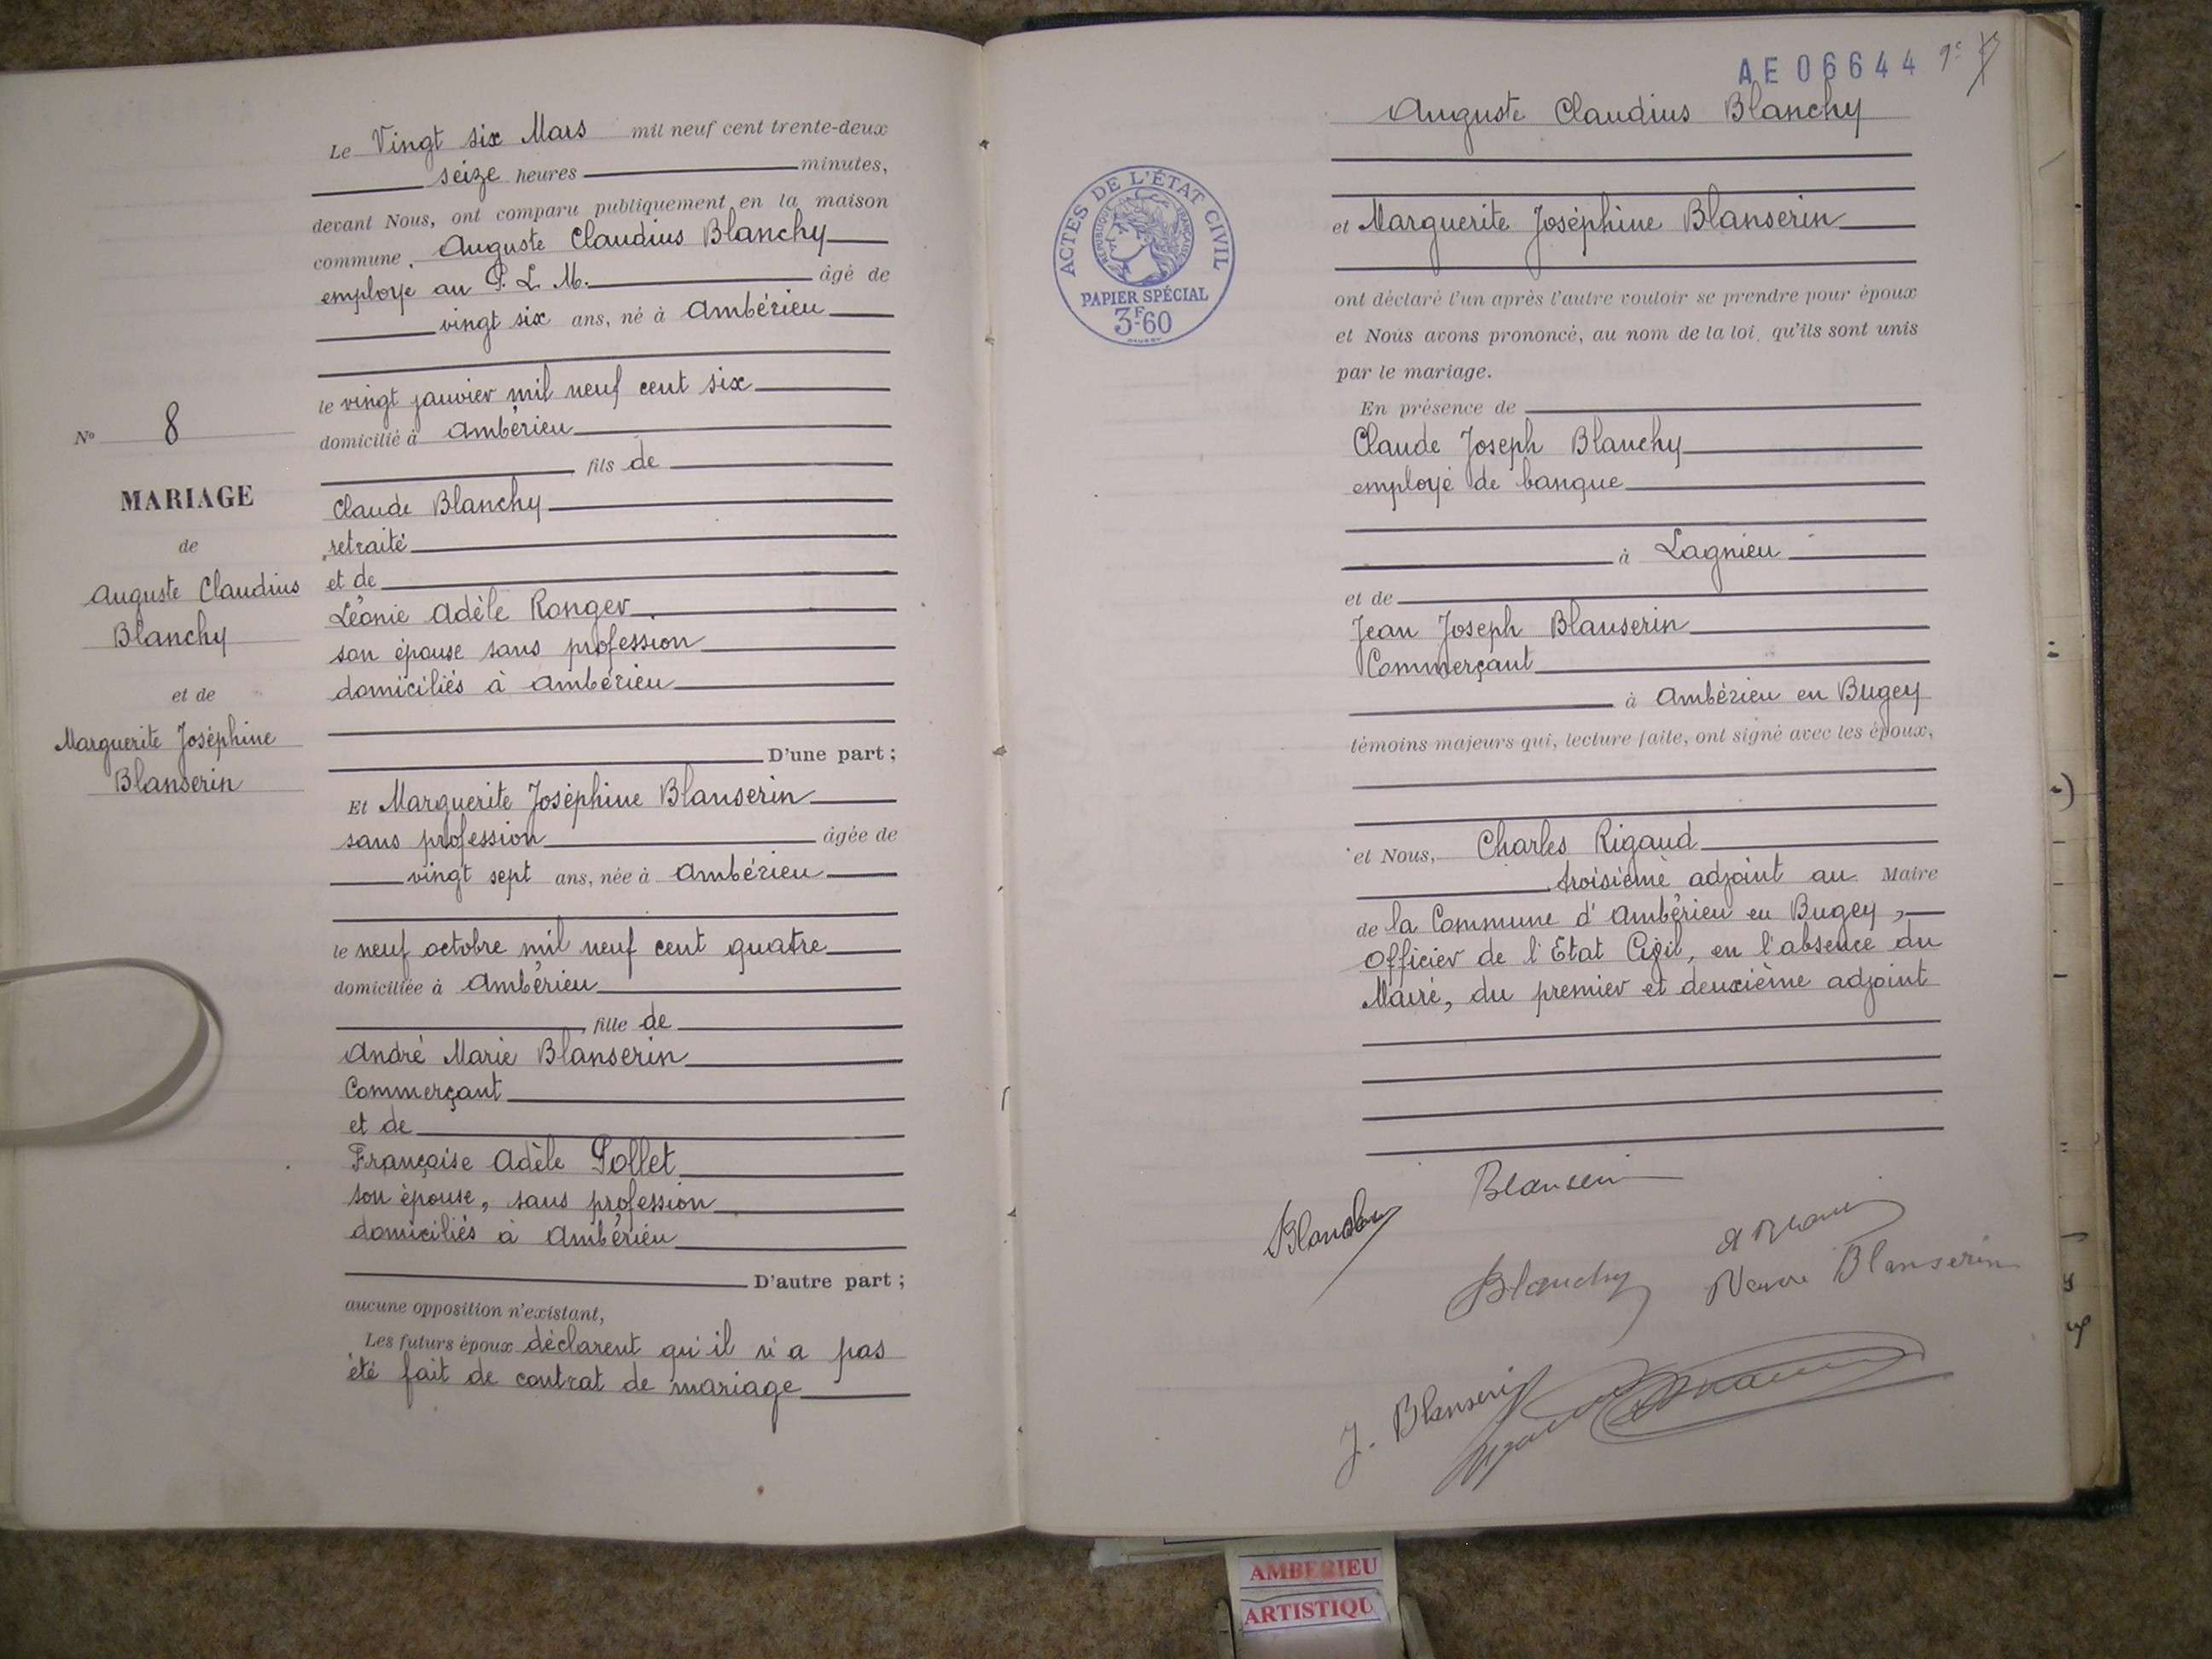 N° 8
MARIAGE
de
Auguste Claudius
Blanchy
et de
Marguerite Joséphine
Blanserin
Le Vingt six Mars mil neuf cent trente-deux
seize heures minutes,
devant Nous, ont comparu publiquement en la maison
commune. Auguste Claudius Blanchy
employe au P. L. M. âgé de
vingt six ans, né à Ambérieu
le vingt janvier mil neuf cent six
domicilié à Ambérieu
fils de
Claude Blanchy
retraité
et de
Léonie Adèle Ronger
son épouse sans profession
domiciliés à Ambérieu
D'une part ;
Et Marguerite Joséphine Blanserin
sans profession âgée de
vingt sept ans, née à Ambérieu
le neuf octobre mil neuf cent quatre
domiciliée à Ambérieu
fille de
André Marie Blanserin
Commerçant
et de
Françoise Adèle Pollet
son épouse, sans profession
domiciliés à Ambérieu
D'autre part ;
aucune opposition n'existant,
Les futurs époux déclarent qu'il n'a pas
été fait de contrat de mariage
AE 06644 9e
Auguste Claudius Blanchy
et Marguerite Joséphine Blanserin
ont déclaré l'un après l'autre vouloir se prendre pour époux
et Nous avons prononcé, au nom de la loi, qu'ils sont unis
par le mariage.
En présence de
Claude Joseph Blanchy
employé de banque
à Lagnieu
et de
Jean Joseph Blanserin
Commerçant
à Ambérieu en Bugey
témoins majeurs qui, lecture faite, ont signé avec les époux,
et Nous, Charles Rigaud
troisième adjoint au Maire
de la Commune d'Ambérieu en Bugey,
Officier de l'Etat Civil, en l'absence du
Maire, du premier et deuxième adjoint
ACTES DE L'ÉTAT CIVIL
RÉPUBLIQUE FRANÇAISE
PAPIER SPÉCIAL
3F.60
Blanserin
Blanchy
Blanchy
Blanserin
J. Blanserin
AMBERIEU
ARTISTIQU